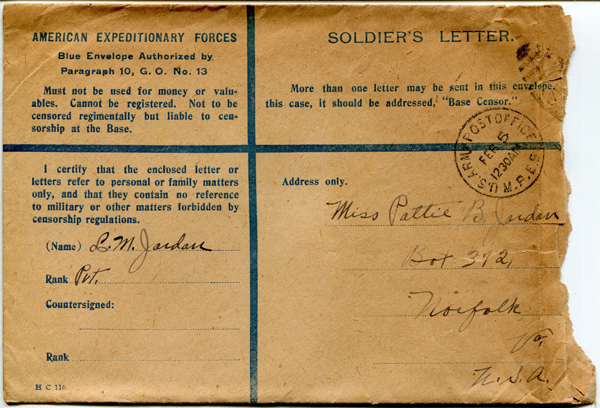 AMERICAN EXPEDITIONARY FORCES
Blue Envelope Authorized by
Paragraph 10, G. O. No. 13
Must not be used for money or valu-
ables. Cannot be registered. Not to be
censored regimentally but liable to cen-
sorship at the Base.
SOLDIER'S LETTER.
More than one letter may be sent in this envelope.
this case, it should be addressed, "Base Censor."
U.S. ARMY POST OFFICE
FEB 5
1230AM
M.P.E.S.
I certify that the enclosed letter or
letters refer to personal or family matters
only, and that they contain no reference
to military or other matters forbidden by
censorship regulations.
(Name) L. M. Jordan
Rank Pvt.
Countersigned:
Rank
H C 116
Address only.
Miss Pattie B. Jordan
Box 392,
Norfolk
Va,
U.S.A.